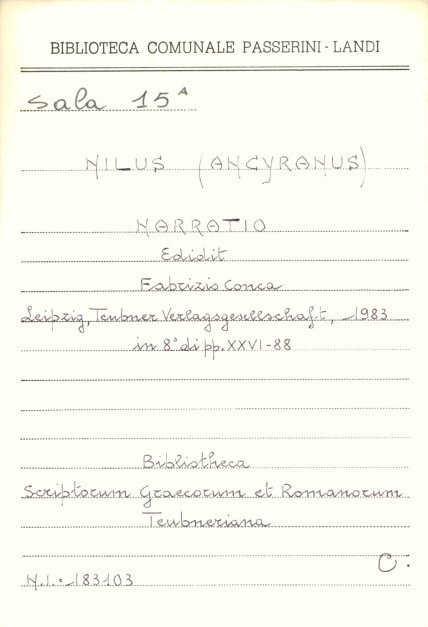 BIBLIOTECA COMUNALE PASSERINI - LANDI
Sala 15ᴬ
NILUS (ANCYRANUS)
NARRATIO
Edidit
Fabrizio Conca
Leipzig, Teubner Verlagsgesellschaft, 1983
in 8° di pp. XXVI-88
Bibliotheca
Scriptorum Graecorum et Romanorum
Teubneriana
C.
N.I. = 183103